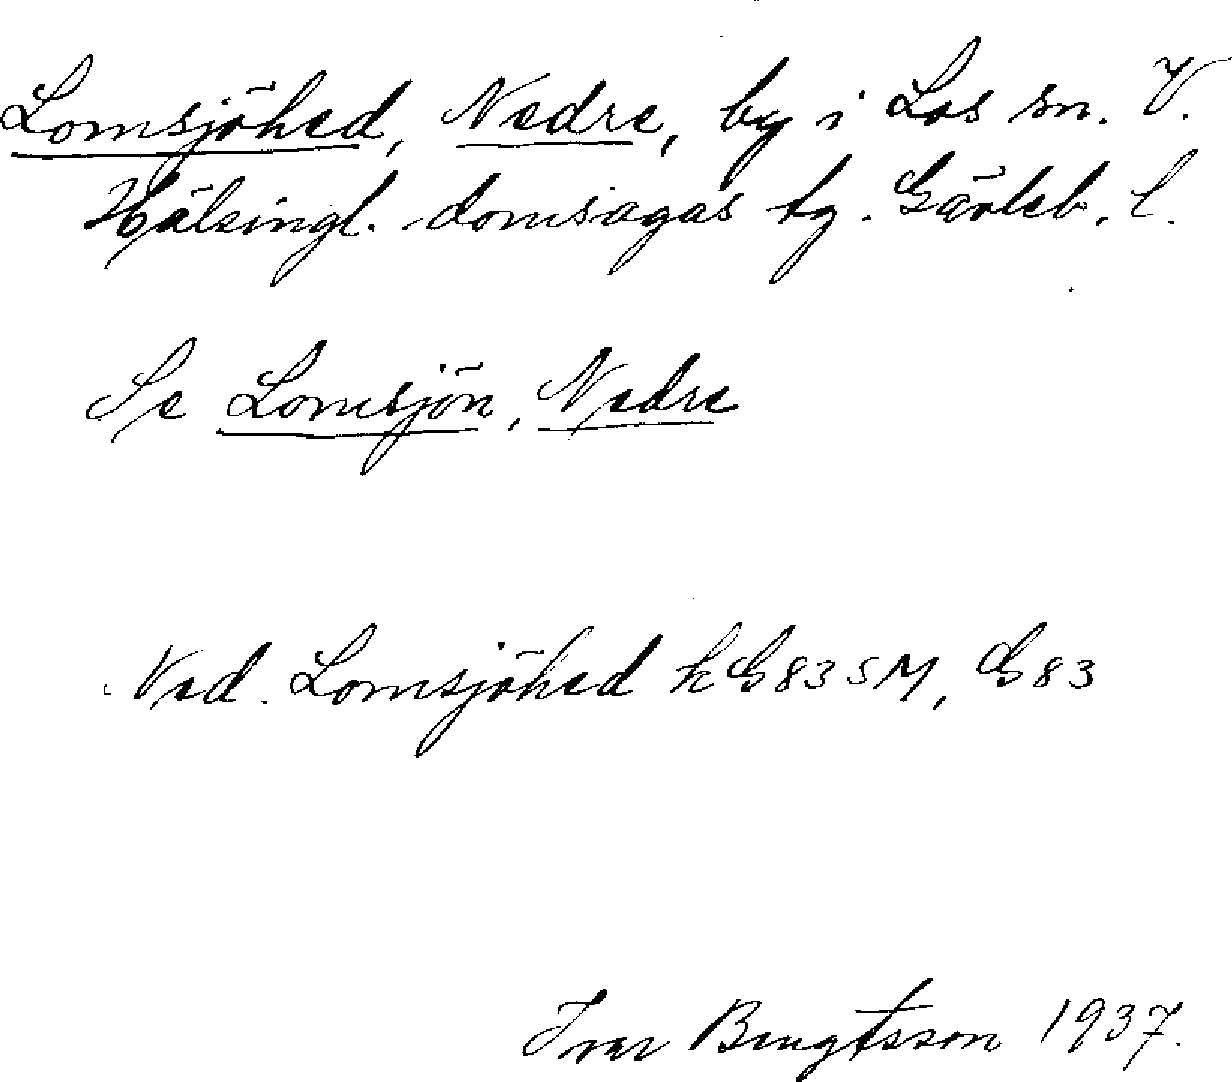 Lomsjöhed, Nedre, by i Los sn. V.
Hälsingl. domsagas tg. Gävleb. l.
Se Lomsjön, Nedre
Ned. Lomsjöhed k G83SM, G83
Ivar Bengtsson 1937.